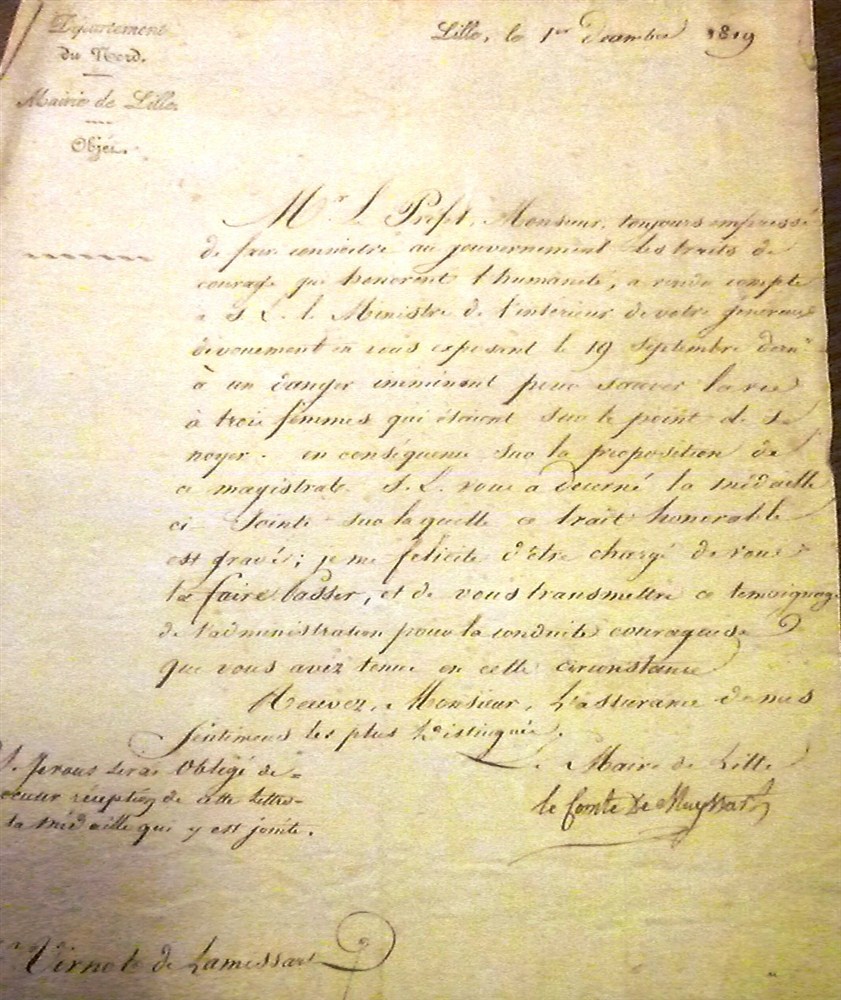 Département
du Nord.
Mairie de Lille.
Objet.
Lille, le 1er Decembre 1819
Mr Le Préfet, Monsieur, toujours empressé
de faire connoitre au gouvernement les traits de
courage qui honorent l'humanité, a rendu compte
a S. E. le Ministre de l'intérieur de votre généreux
dévouement en vous exposant le 19 Septembre dern.
à un danger imminent pour sauver la vie
à trois femmes qui étaient sur le point de se
noyer. en conséquence sur la proposition de
ce magistrat S. E. vous a décerné la médaille
ci Jointe sur laquelle ce trait honorable
est gravé; je me félicite d'être chargé de vous
la faire passer, et de vous transmettre ce temoignage
de l'administration pour la conduite courageuse
que vous avez tenue en cette circonstance
Recevez, Monsieur, L'assurance de mes
Sentimens les plus Distingués.
Le Maire de Lille
le Comte De Muyssart
Je vous serai Obligé de
réception de cette lettre
la médaille qui y est jointe.
Virnot de Lamissart